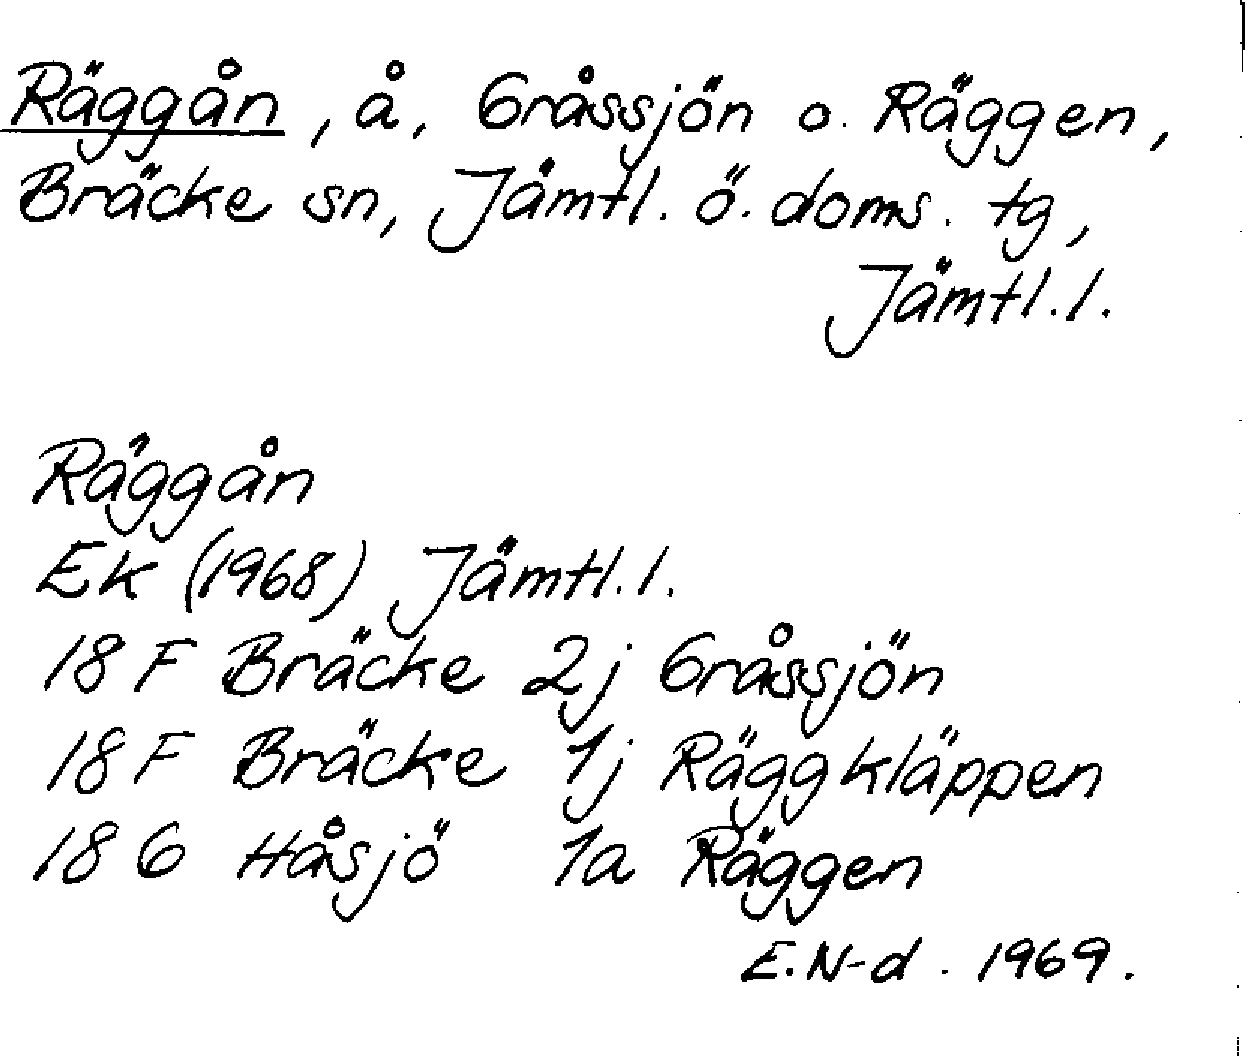 Räggån, å, Gråssjön o. Räggen,
Bräcke sn, Jämtl. ö. doms. tg,
Jämtl. l.
Räggån
EK (1968) Jämtl. l.
18 F Bräcke 2j Gråssjön
18 F Bräcke 1j Räggkläppen
18 G Håsjö 1a Räggen
E.N-d. 1969.